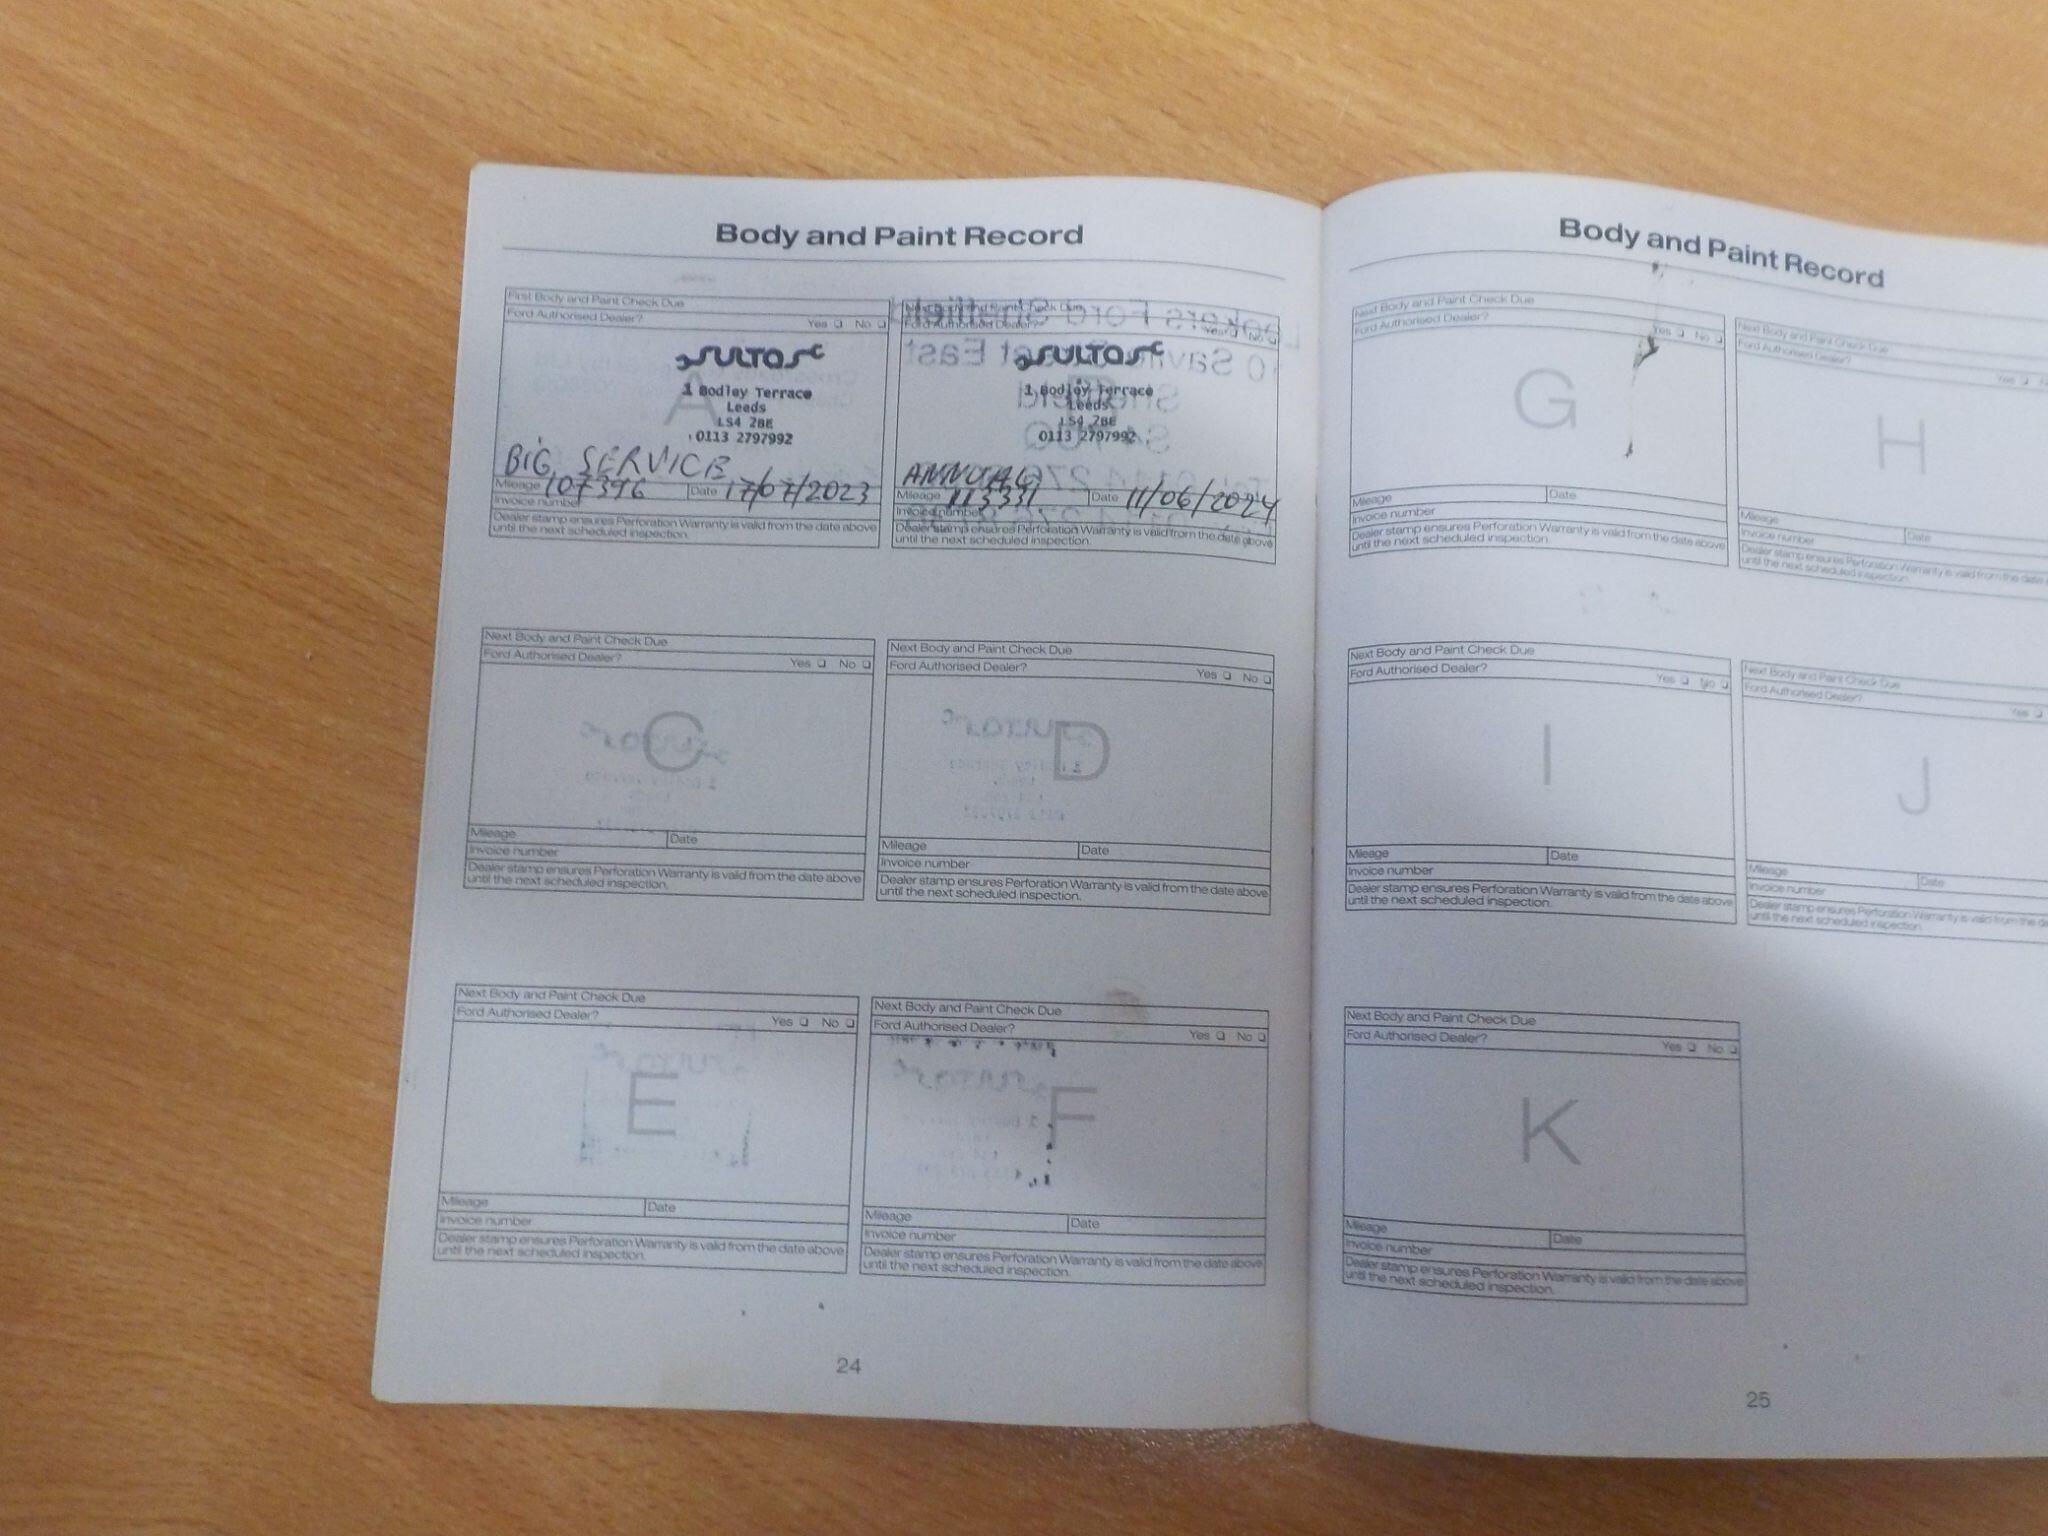 Body and Paint Record
First Body and Paint Check Due
Ford Authorised Dealer? Yes No
SULTAS
1 Bodley Terrace
Leeds
LS4 2BE
0113 2797992
BIG SERVICE
Mileage 107396 Date 17/07/2023
Invoice number
Dealer stamp ensures Perforation Warranty is valid from the date above
until the next scheduled inspection.
Next Body and Paint Check Due
Ford Authorised Dealer? Yes No
SULTAS
1 Bodley Terrace
Leeds
LS4 2BE
0113 2797992
ANNUAL
Mileage 113331 Date 11/06/2024
Invoice number
Dealer stamp ensures Perforation Warranty is valid from the date above
until the next scheduled inspection.
Next Body and Paint Check Due
Ford Authorised Dealer? Yes No
C
Mileage Date
Invoice number
Dealer stamp ensures Perforation Warranty is valid from the date above
until the next scheduled inspection.
Next Body and Paint Check Due
Ford Authorised Dealer? Yes No
D
Mileage Date
Invoice number
Dealer stamp ensures Perforation Warranty is valid from the date above
until the next scheduled inspection.
Next Body and Paint Check Due
Ford Authorised Dealer? Yes No
E
Mileage Date
Invoice number
Dealer stamp ensures Perforation Warranty is valid from the date above
until the next scheduled inspection.
Next Body and Paint Check Due
Ford Authorised Dealer? Yes No
F
Mileage Date
Invoice number
Dealer stamp ensures Perforation Warranty is valid from the date above
until the next scheduled inspection.
24
Body and Paint Record
Next Body and Paint Check Due
Ford Authorised Dealer? Yes No
G
Mileage Date
Invoice number
Dealer stamp ensures Perforation Warranty is valid from the date above
until the next scheduled inspection.
Next Body and Paint Check Due
Ford Authorised Dealer? Yes
H
Mileage Date
Invoice number
Dealer stamp ensures Perforation Warranty is valid from the date
until the next scheduled inspection.
Next Body and Paint Check Due
Ford Authorised Dealer? Yes No
I
Mileage Date
Invoice number
Dealer stamp ensures Perforation Warranty is valid from the date above
until the next scheduled inspection.
Next Body and Paint Check Due
Ford Authorised Dealer? Yes
J
Mileage Date
Invoice number
Dealer stamp ensures Perforation Warranty is valid from the date
until the next scheduled inspection.
Next Body and Paint Check Due
Ford Authorised Dealer? Yes No
K
Mileage Date
Invoice number
Dealer stamp ensures Perforation Warranty is valid from the date above
until the next scheduled inspection.
25